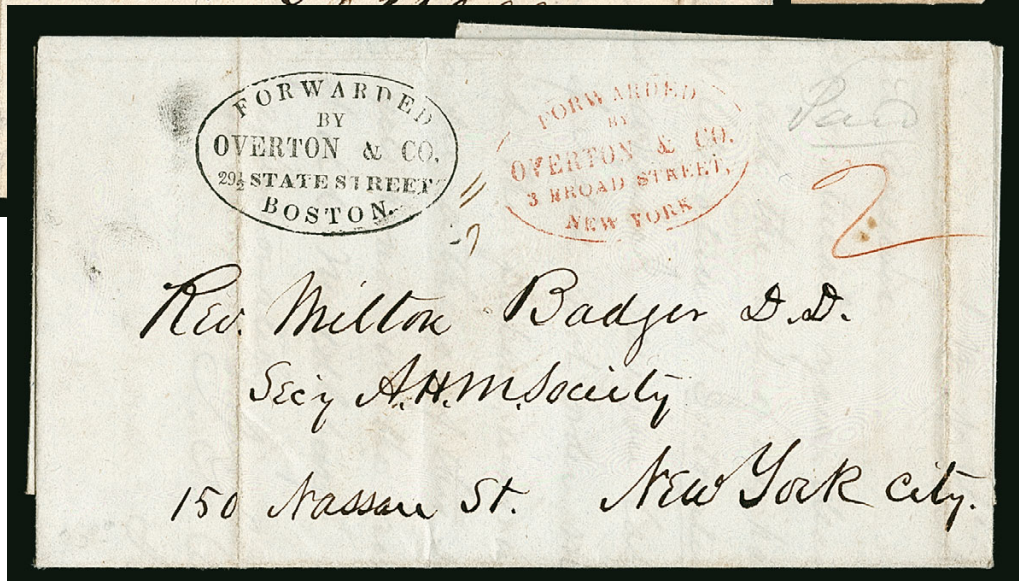 FORWARDED
BY
OVERTON & CO.
29½ STATE STREET
BOSTON.
FORWARDED
BY
OVERTON & CO.
3 BROAD STREET,
NEW YORK
Paid
2
Rev. Milton Badger D.D.
Secy A.H.M. Society
150 Nassau St. New York City.